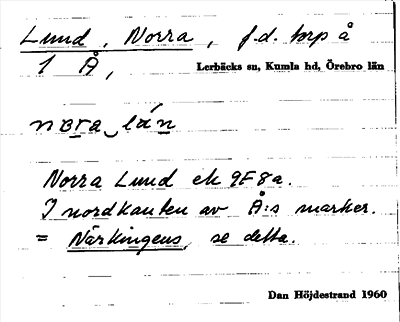 Lund, Norra, f.d. torp å
1 Å, Lerbäcks sn, Kumla hd, Örebro län
nɷra‿lún
Norra Lund ek 9F8a.
I nordkanten av Å:s marker.
= Närkingens, se detta.
Dan Höjdestrand 1960